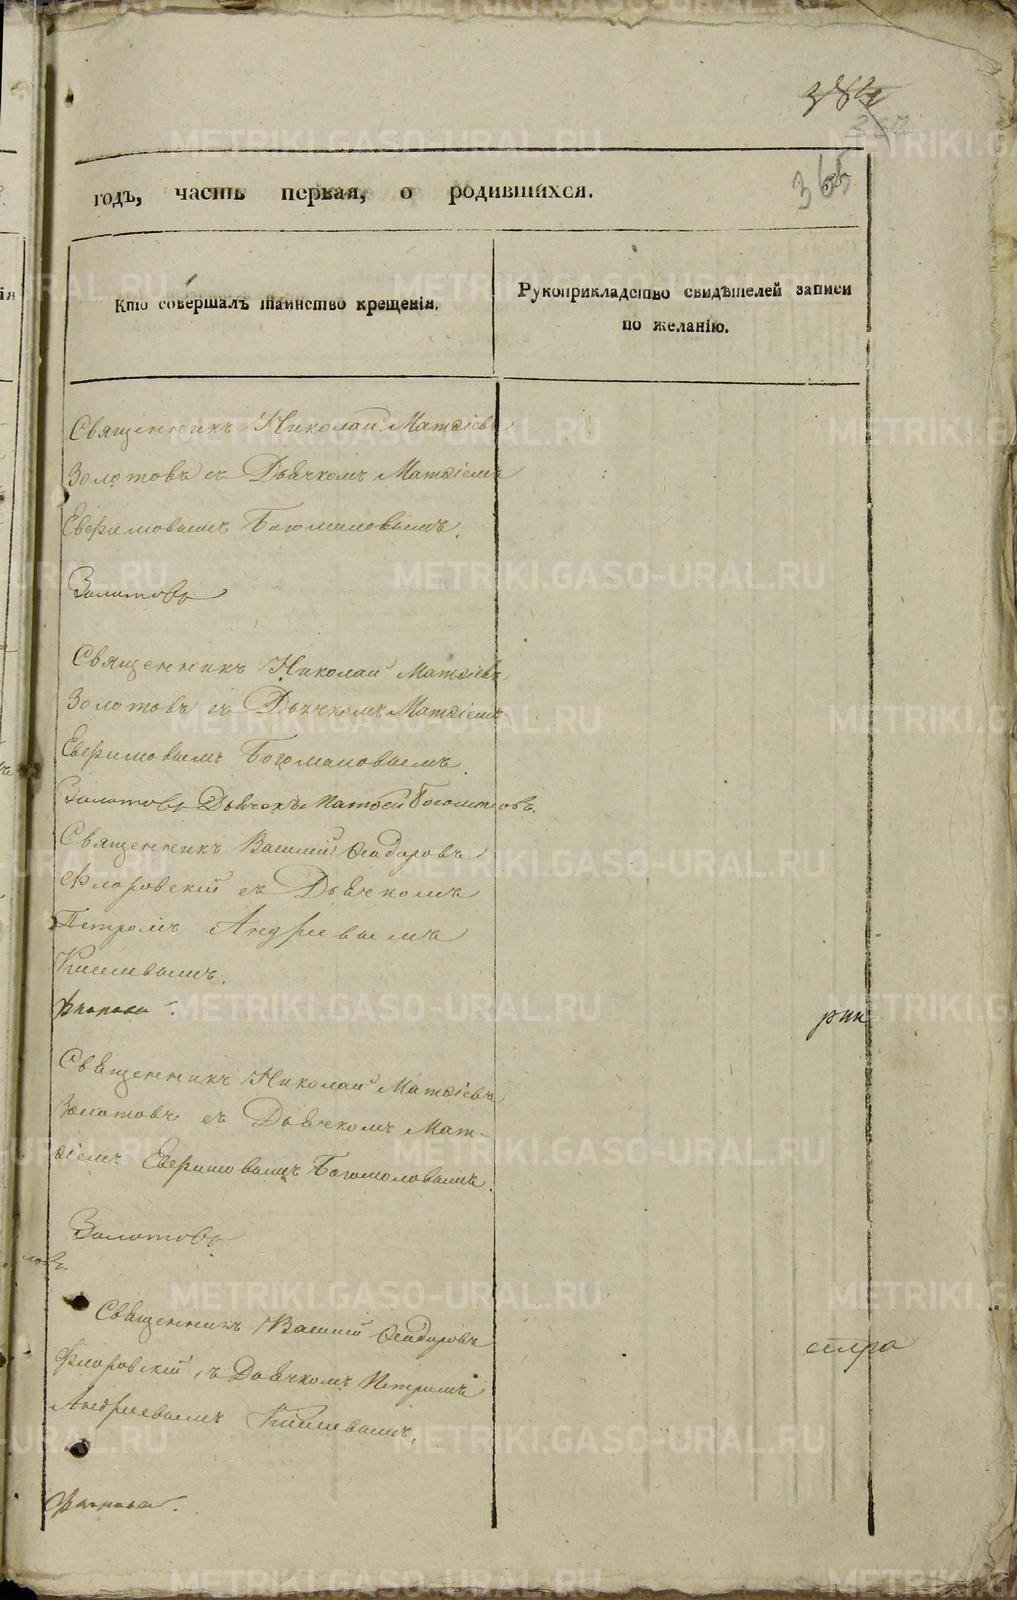 365
годъ, часть первая, о родившихся.
Кто совершалъ таинство крещенія.
Рукоприкладство свидѣтелей записи
по желанію.
Священникъ Николай Матѳіевъ
Золотовъ съ Дьячкомъ Матѳіемъ
Евфимовымъ Богомоловымъ.
Золотовъ
Священникъ Николай Матѳіевъ
Золотовъ съ Дьячкомъ Матѳіемъ
Евфимовымъ Богомоловымъ
Золотовъ Дьячокъ Матвей Богомоловъ.
Священникъ Василій Ѳеодоровъ
Флоровскій съ Дьячкомъ
Петромъ Андреевымъ
Киселевымъ.
Священникъ Николай Матѳіевъ
Золотовъ съ Дьячкомъ Мат-
ѳіемъ Евфимовымъ Богомоловымъ.
Золотовъ
Священникъ Василій Ѳеодоровъ
Флоровскій съ Дьячкомъ Петромъ
Андреевымъ Киселевымъ.
METRIKI.GASO-URAL.RU